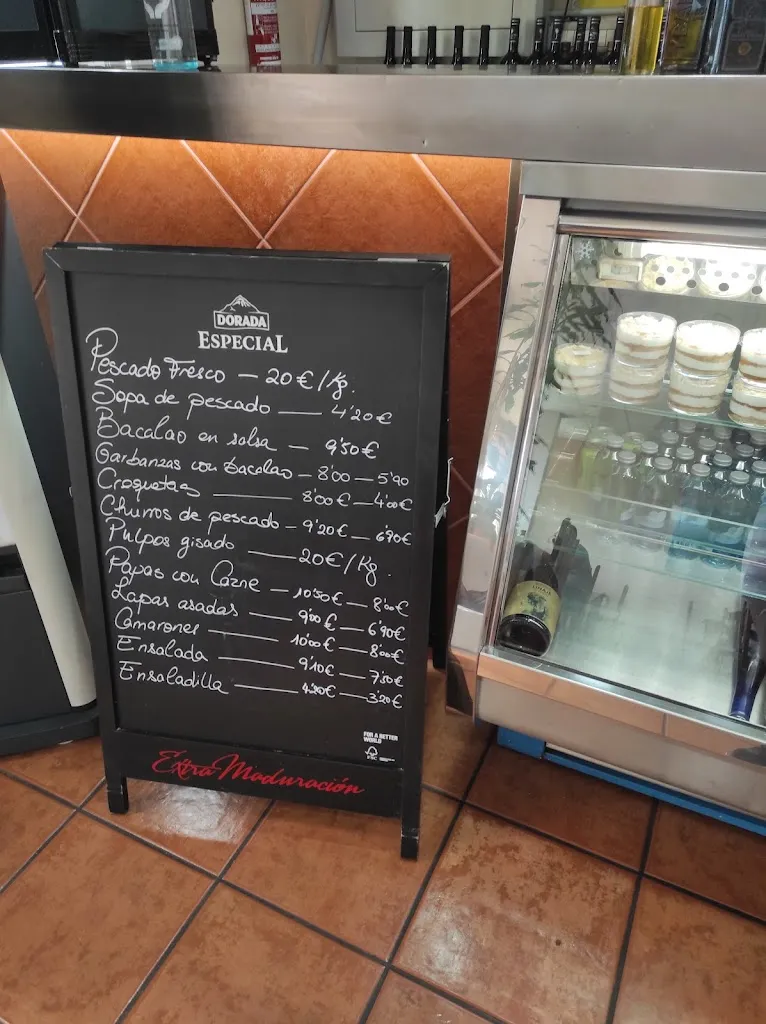 DORADA
ESPECIAL
Pescado Fresco — 20€/Kg.
Sopa de pescado — 4'20€
Bacalao en salsa — 9'50€
Garbanzas con bacalao — 8'00 — 5'90
Croquetas — 8'00€ — 4'00€
Churros de pescado — 9'20€ — 6'90€
Pulpos gisado — 20€/Kg.
Papas con Carne — 10'50€ — 8'00€
Lapas asadas — 9'00€ — 6'90€
Camarones — 10'00€ — 8'00€
Ensalada — 9'10€ — 7'50€
Ensaladilla — 4'20€ — 3'20€
FOR A BETTER
WORLD
FSC
Extra Maduración